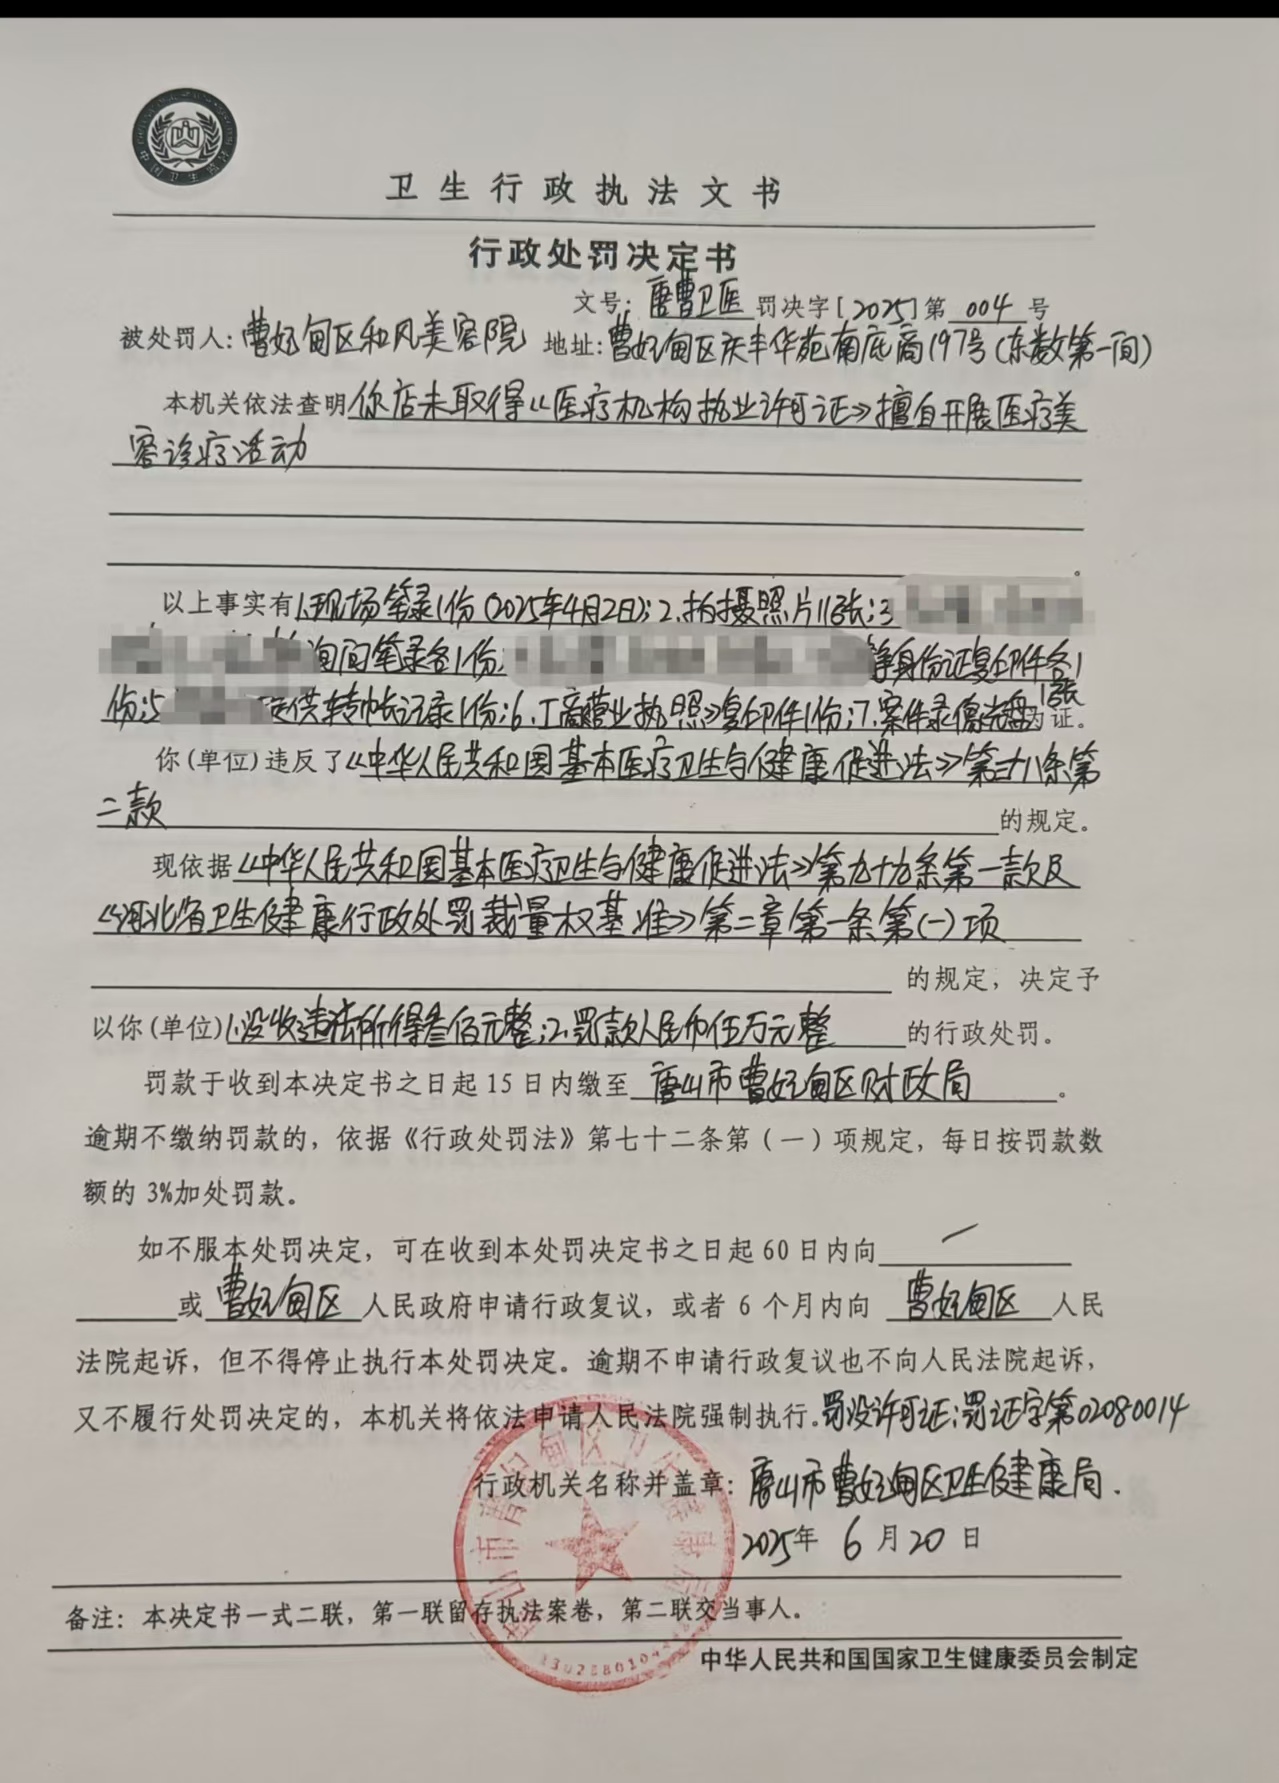 中国卫生监督
卫生行政执法文书
行政处罚决定书
文号：唐曹卫医 罚决字[2025]第 004 号
被处罚人：曹妃甸区和风美容院 地址：曹妃甸区庆丰华苑南底商197号(东数第一间)
本机关依法查明你店未取得《医疗机构执业许可证》擅自开展医疗美
容诊疗活动
。
以上事实有1.现场笔录1份(2025年4月2日)；2.拍摄照片11张；3
询问笔录各1份； 身份证复印件各1
份；5 提供转帐记录1份；6.工商营业执照》复印件1份；7.案件录像光盘1张为证。
你(单位)违反了《中华人民共和国基本医疗卫生与健康促进法》第三十八条第
二款 的规定。
现依据《中华人民共和国基本医疗卫生与健康促进法》第九十九条第一款及
《河北省卫生健康行政处罚裁量权基准》第二章第一条第(一)项
的规定，决定予
以你(单位)1.没收违法所得叁佰元整；2.罚款人民币伍万元整 的行政处罚。
罚款于收到本决定书之日起15日内缴至 唐山市曹妃甸区财政局 。
逾期不缴纳罚款的，依据《行政处罚法》第七十二条第（一）项规定，每日按罚款数
额的 3%加处罚款。
如不服本处罚决定，可在收到本处罚决定书之日起60日内向
或 曹妃甸区 人民政府申请行政复议，或者 6 个月内向 曹妃甸区 人民
法院起诉，但不得停止执行本处罚决定。逾期不申请行政复议也不向人民法院起诉，
又不履行处罚决定的，本机关将依法申请人民法院强制执行。罚没许可证：罚证字第02080014
行政机关名称并盖章：唐山市曹妃甸区卫生健康局.
2025年 6 月 20 日
唐山市曹妃甸区卫生健康局
备注：本决定书一式二联，第一联留存执法案卷，第二联交当事人。
中华人民共和国国家卫生健康委员会制定